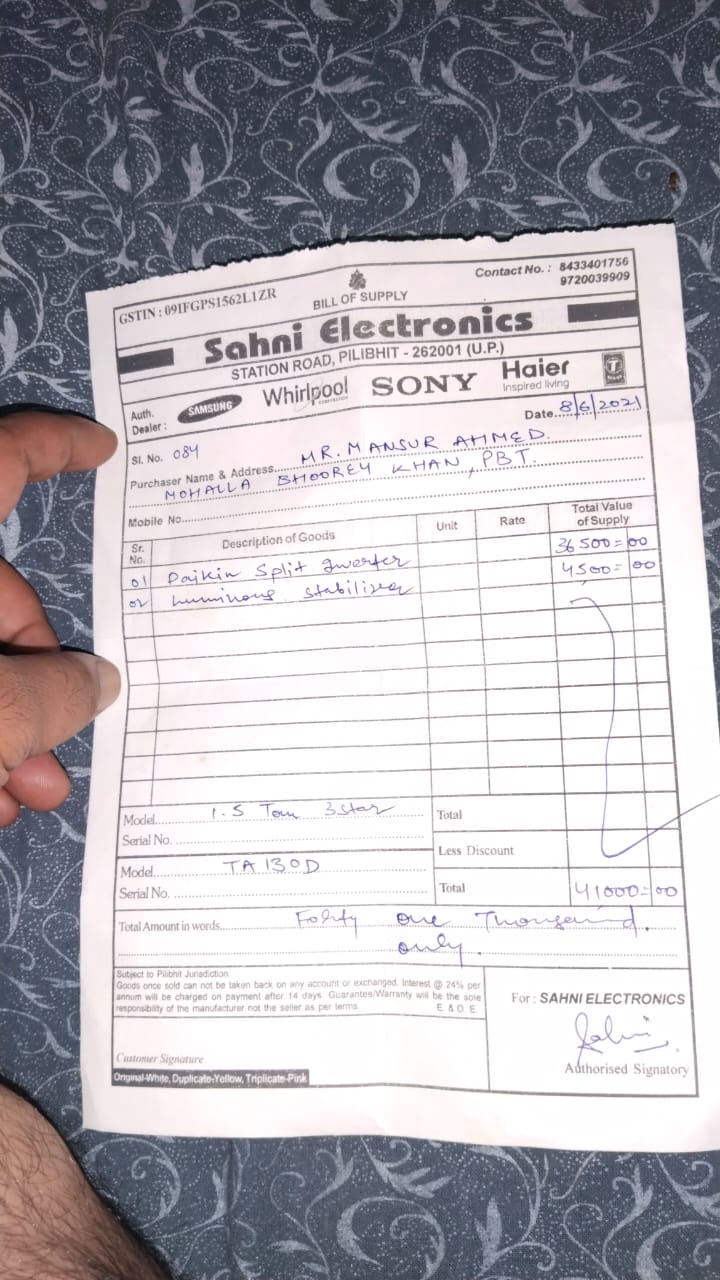 GSTIN : 09IFGPS1562L1ZR
BILL OF SUPPLY
Contact No. : 8433401756
9720039909
Sahni Electronics
STATION ROAD, PILIBHIT - 262001 (U.P.)
Auth. Dealer : SAMSUNG Whirlpool SONY Haier
Inspired living
Date 8/6/2021
Sl. No. 084
Purchaser Name & Address MR. MANSUR AHMED.
MOHALLA BHOOREY KHAN, PBT.
Mobile No.
Sr. No. Description of Goods Unit Rate Total Value of Supply
01 Daikin Split Inverter 36500=00
02 Luminous Stabilizer 4500=00
Model 1.5 Ton 3 Star Total
Serial No.
Less Discount
Model TA 130D
Serial No. Total 41000=00
Total Amount in words Forty one Thousand.
only.
Subject to Pilibhit Jurisdiction
Goods once sold can not be taken back on any account or exchanged. Interest @ 24% per
annum will be charged on payment after 14 days. Guarantee/Warranty will be the sole
responsibility of the manufacturer not the seller as per terms E. & O. E.
For : SAHNI ELECTRONICS
Customer Signature
Authorised Signatory
Original-White, Duplicate-Yellow, Triplicate-Pink